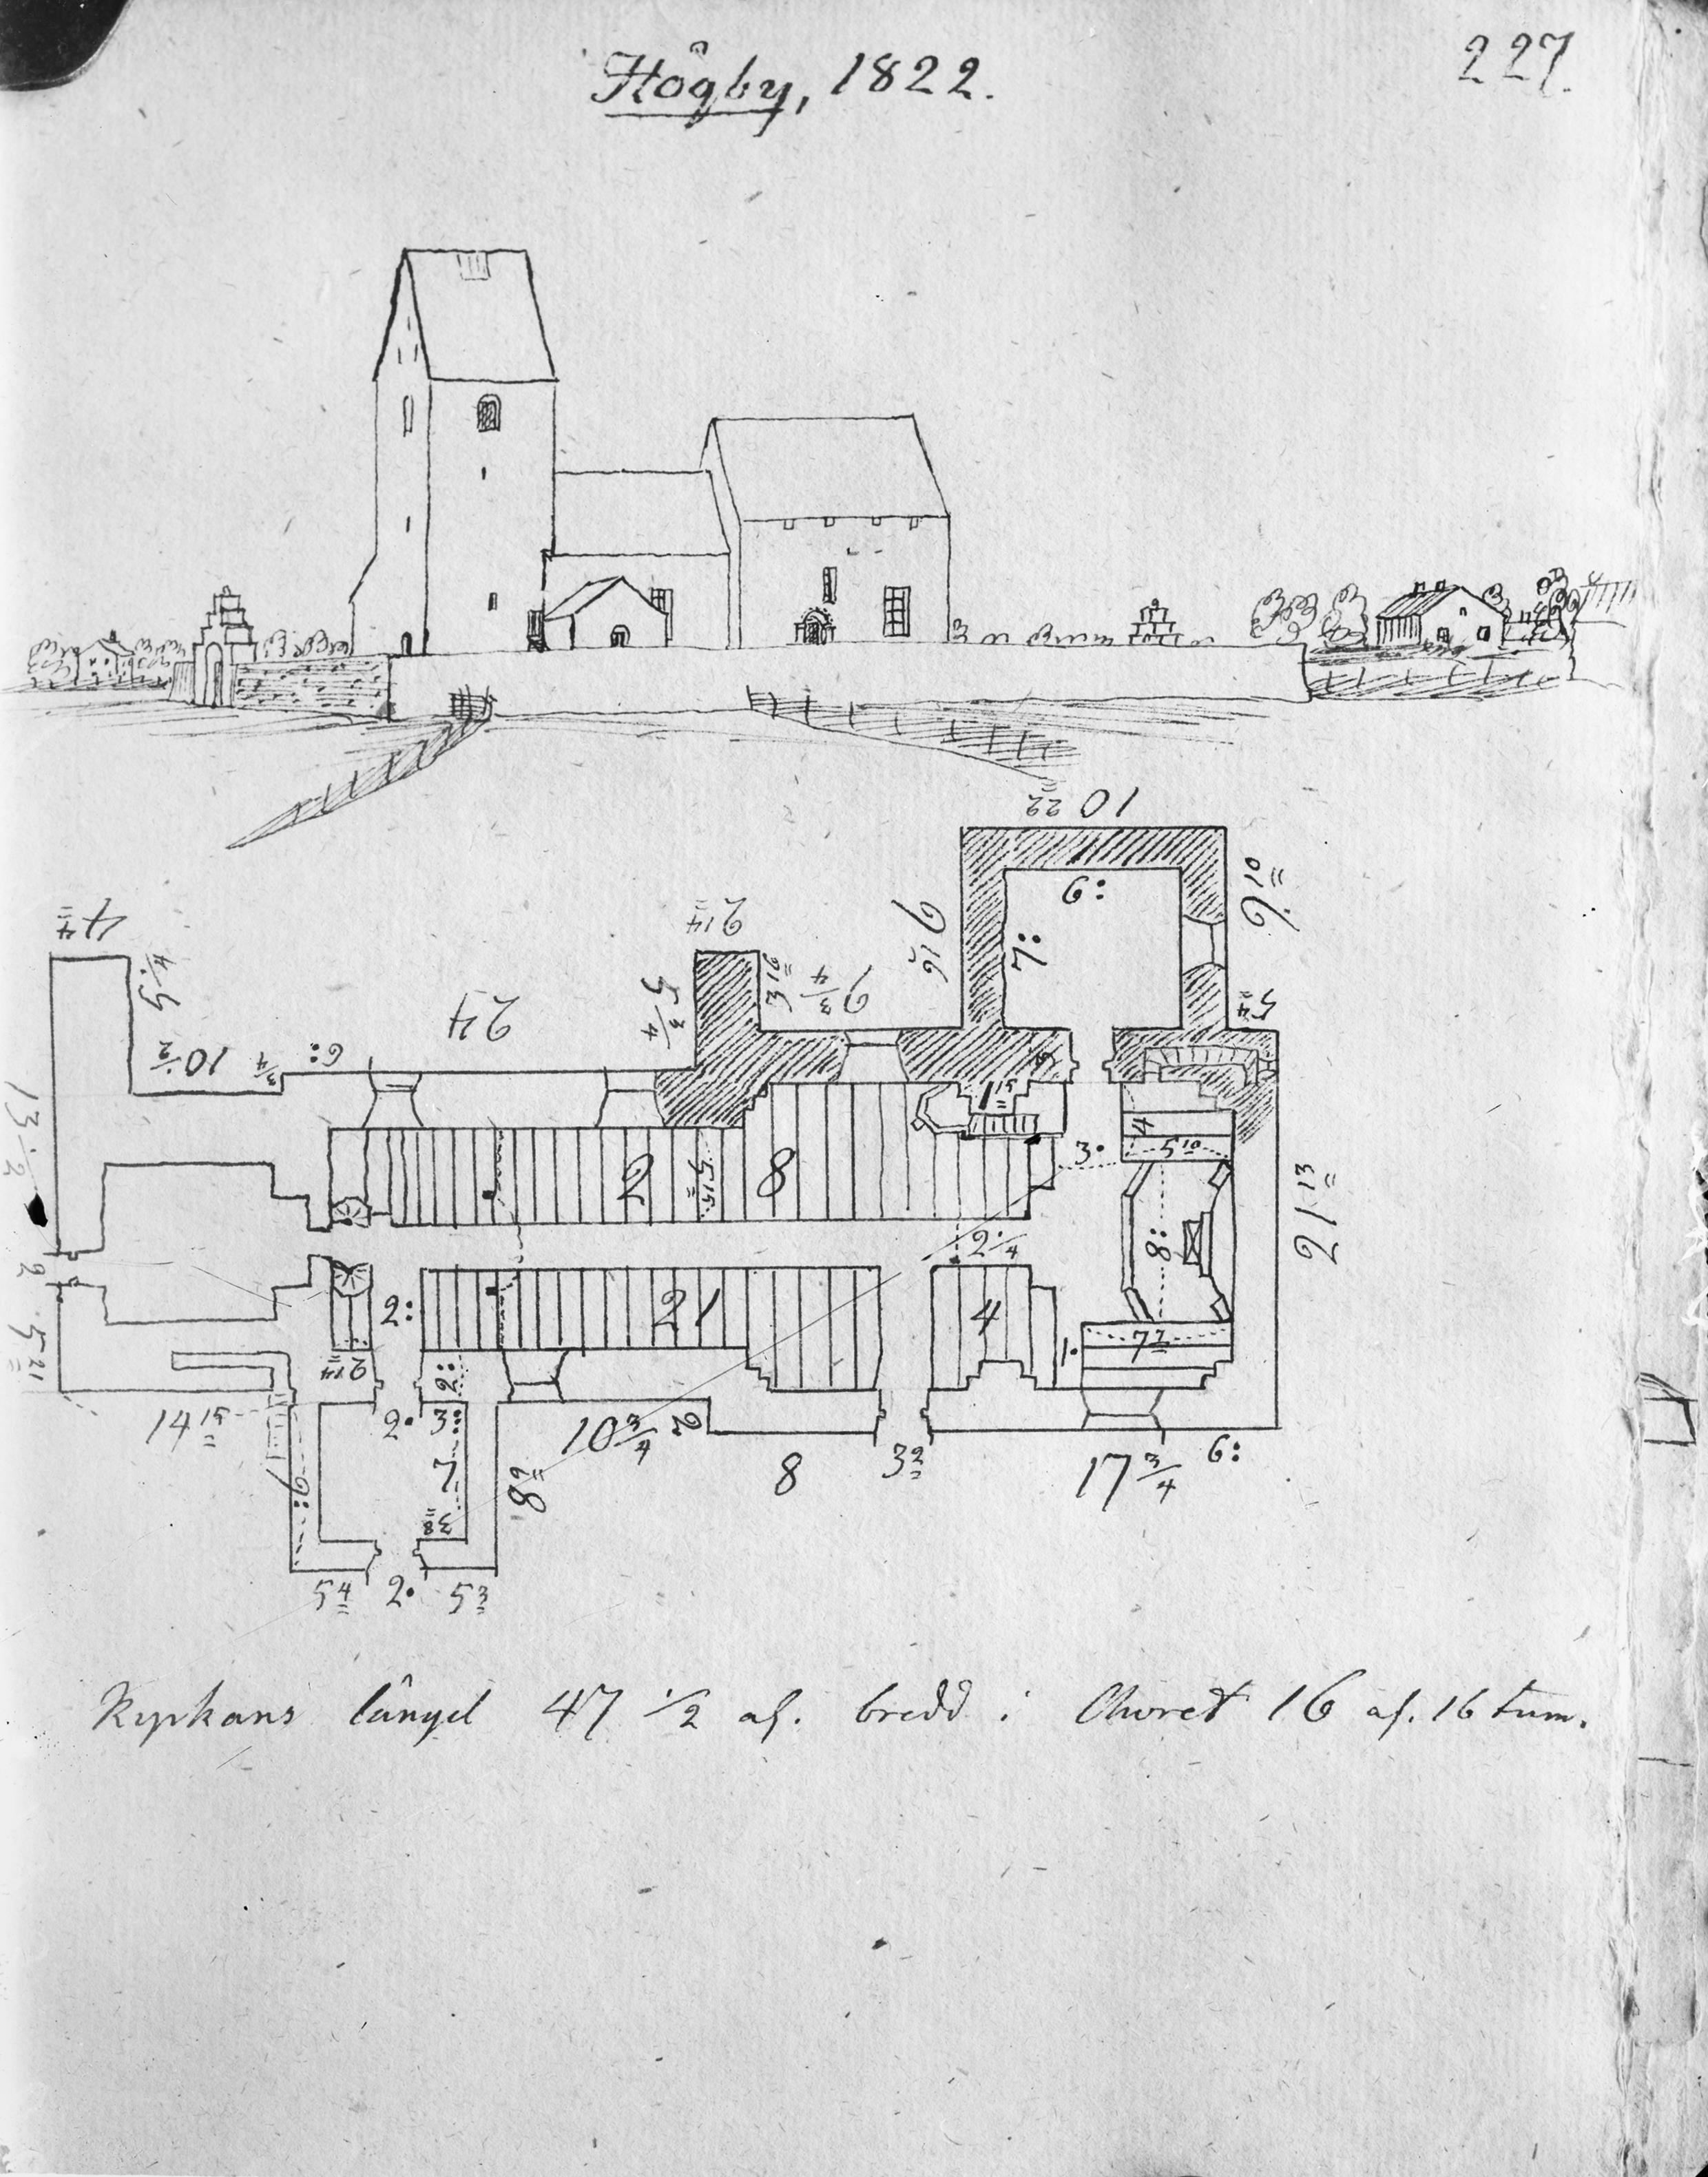 Högby, 1822.
227.
10 22
6:
7:
9 10
9 16
2 14
4 4
5 1/4
10 1/2
3/4
6:
24
5 3/4
3 16
9 3/4
5 4
13 1/2
2
5 21
1 15
4
5 10
3.
2
5 15
8
2 1/4
8:
21 13
2:
21
4
1.
7 7
2 14
2:
14 15
2.
3:
10 3/4
2
8
3 2
17 3/4
6:
7
9:
8 9
3 8
5 4
2.
5 3
Kyrkans längd 47 1/2 al. bredd i Choret 16 al. 16 tum.